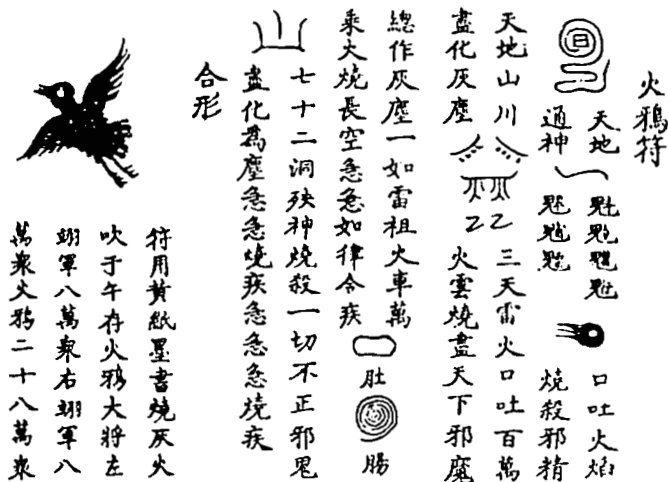 火鴉符
天地
通神
口吐火焰
燒殺邪精
天地山川
盡化灰塵
三天雷火口吐百萬
火雲燒盡天下邪魔
總作灰塵一如雷祖火車萬
乘火燒長空急急如律令疾
肚
腸
七十二洞殃神燒殺一切不正邪鬼
盡化為塵急急燒疾急急急燒疾
合形
符用黃紙墨書燒灰火
吹于午存火鴉大將左
翊軍八萬衆右翊軍八
萬衆火鴉二十八萬衆